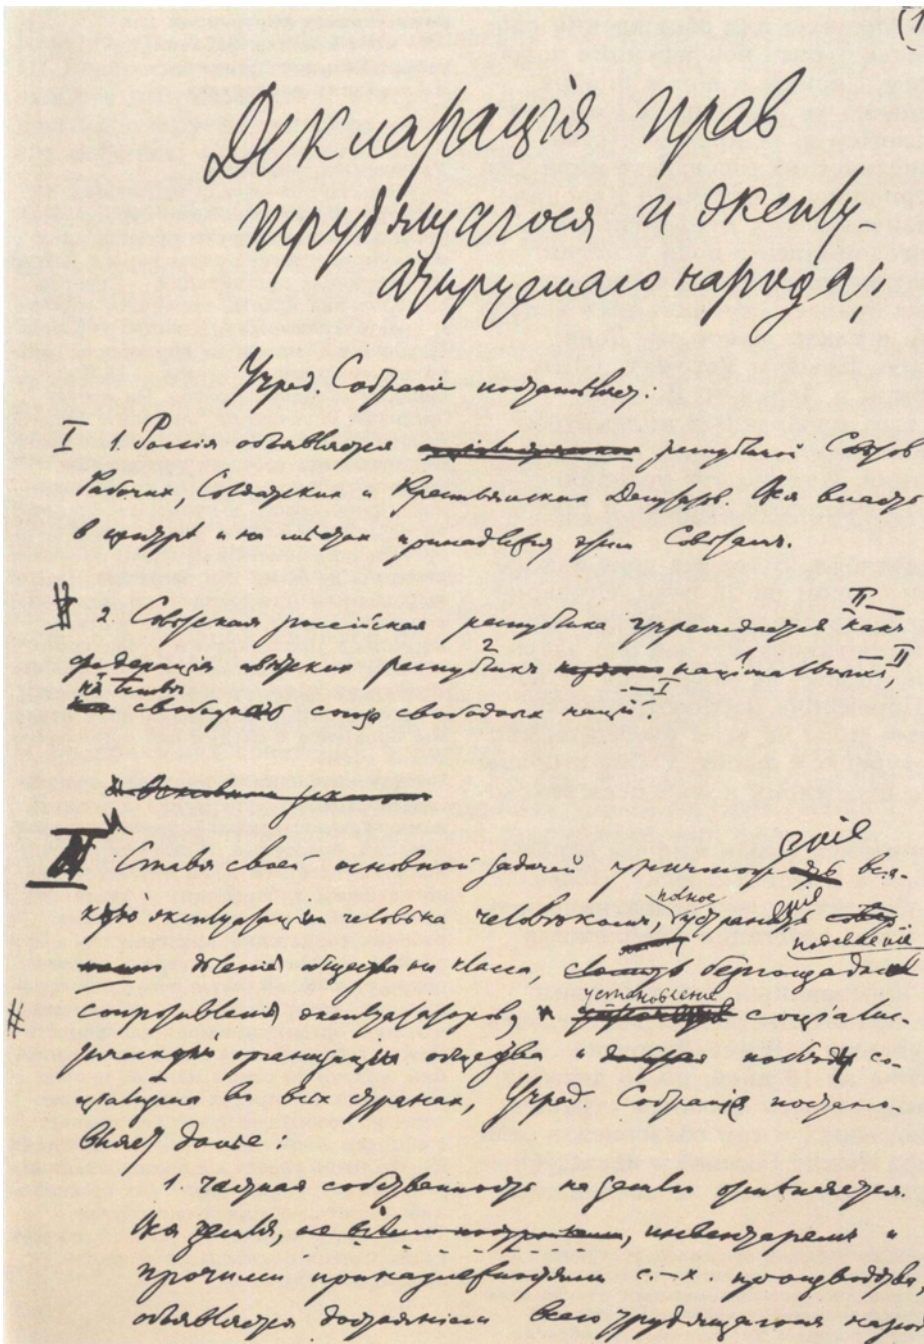 (1
Декларация прав
трудящагося и эксплу-
атируемаго народа!
Учред. Собраніе постановляет:
I 1. Россія объявляется республикой Совѣтов
Рабочих, Солдатских и Крестьянских Депутатов. Вся власть
в центрѣ и на мѣстах принадлежит этим Совѣтам.
2. Совѣтская россійская республика учреждается как II
федерація совѣтских республик 2 національных 1, II
на основѣ свободнаго союза свободных націй. I
II Ставя своей основной задачей уничтоженіе вся-
кой эксплуатаціи человѣка человѣком, полное устраненіе
дѣленія общества на классы, беспощадное подавленіе
сопротивленія эксплуататоров, установленіе соціалис-
тической организаціи общества и побѣды со-
ціализма во всѣх странах, Учред. Собраніе постано-
вляет далѣе:
1. Частная собственность на землю отмѣняется.
Вся земля, инвентарем и
прочими принадлежностями с.-х. производства,
объявляется достояніем всего трудящагося наро